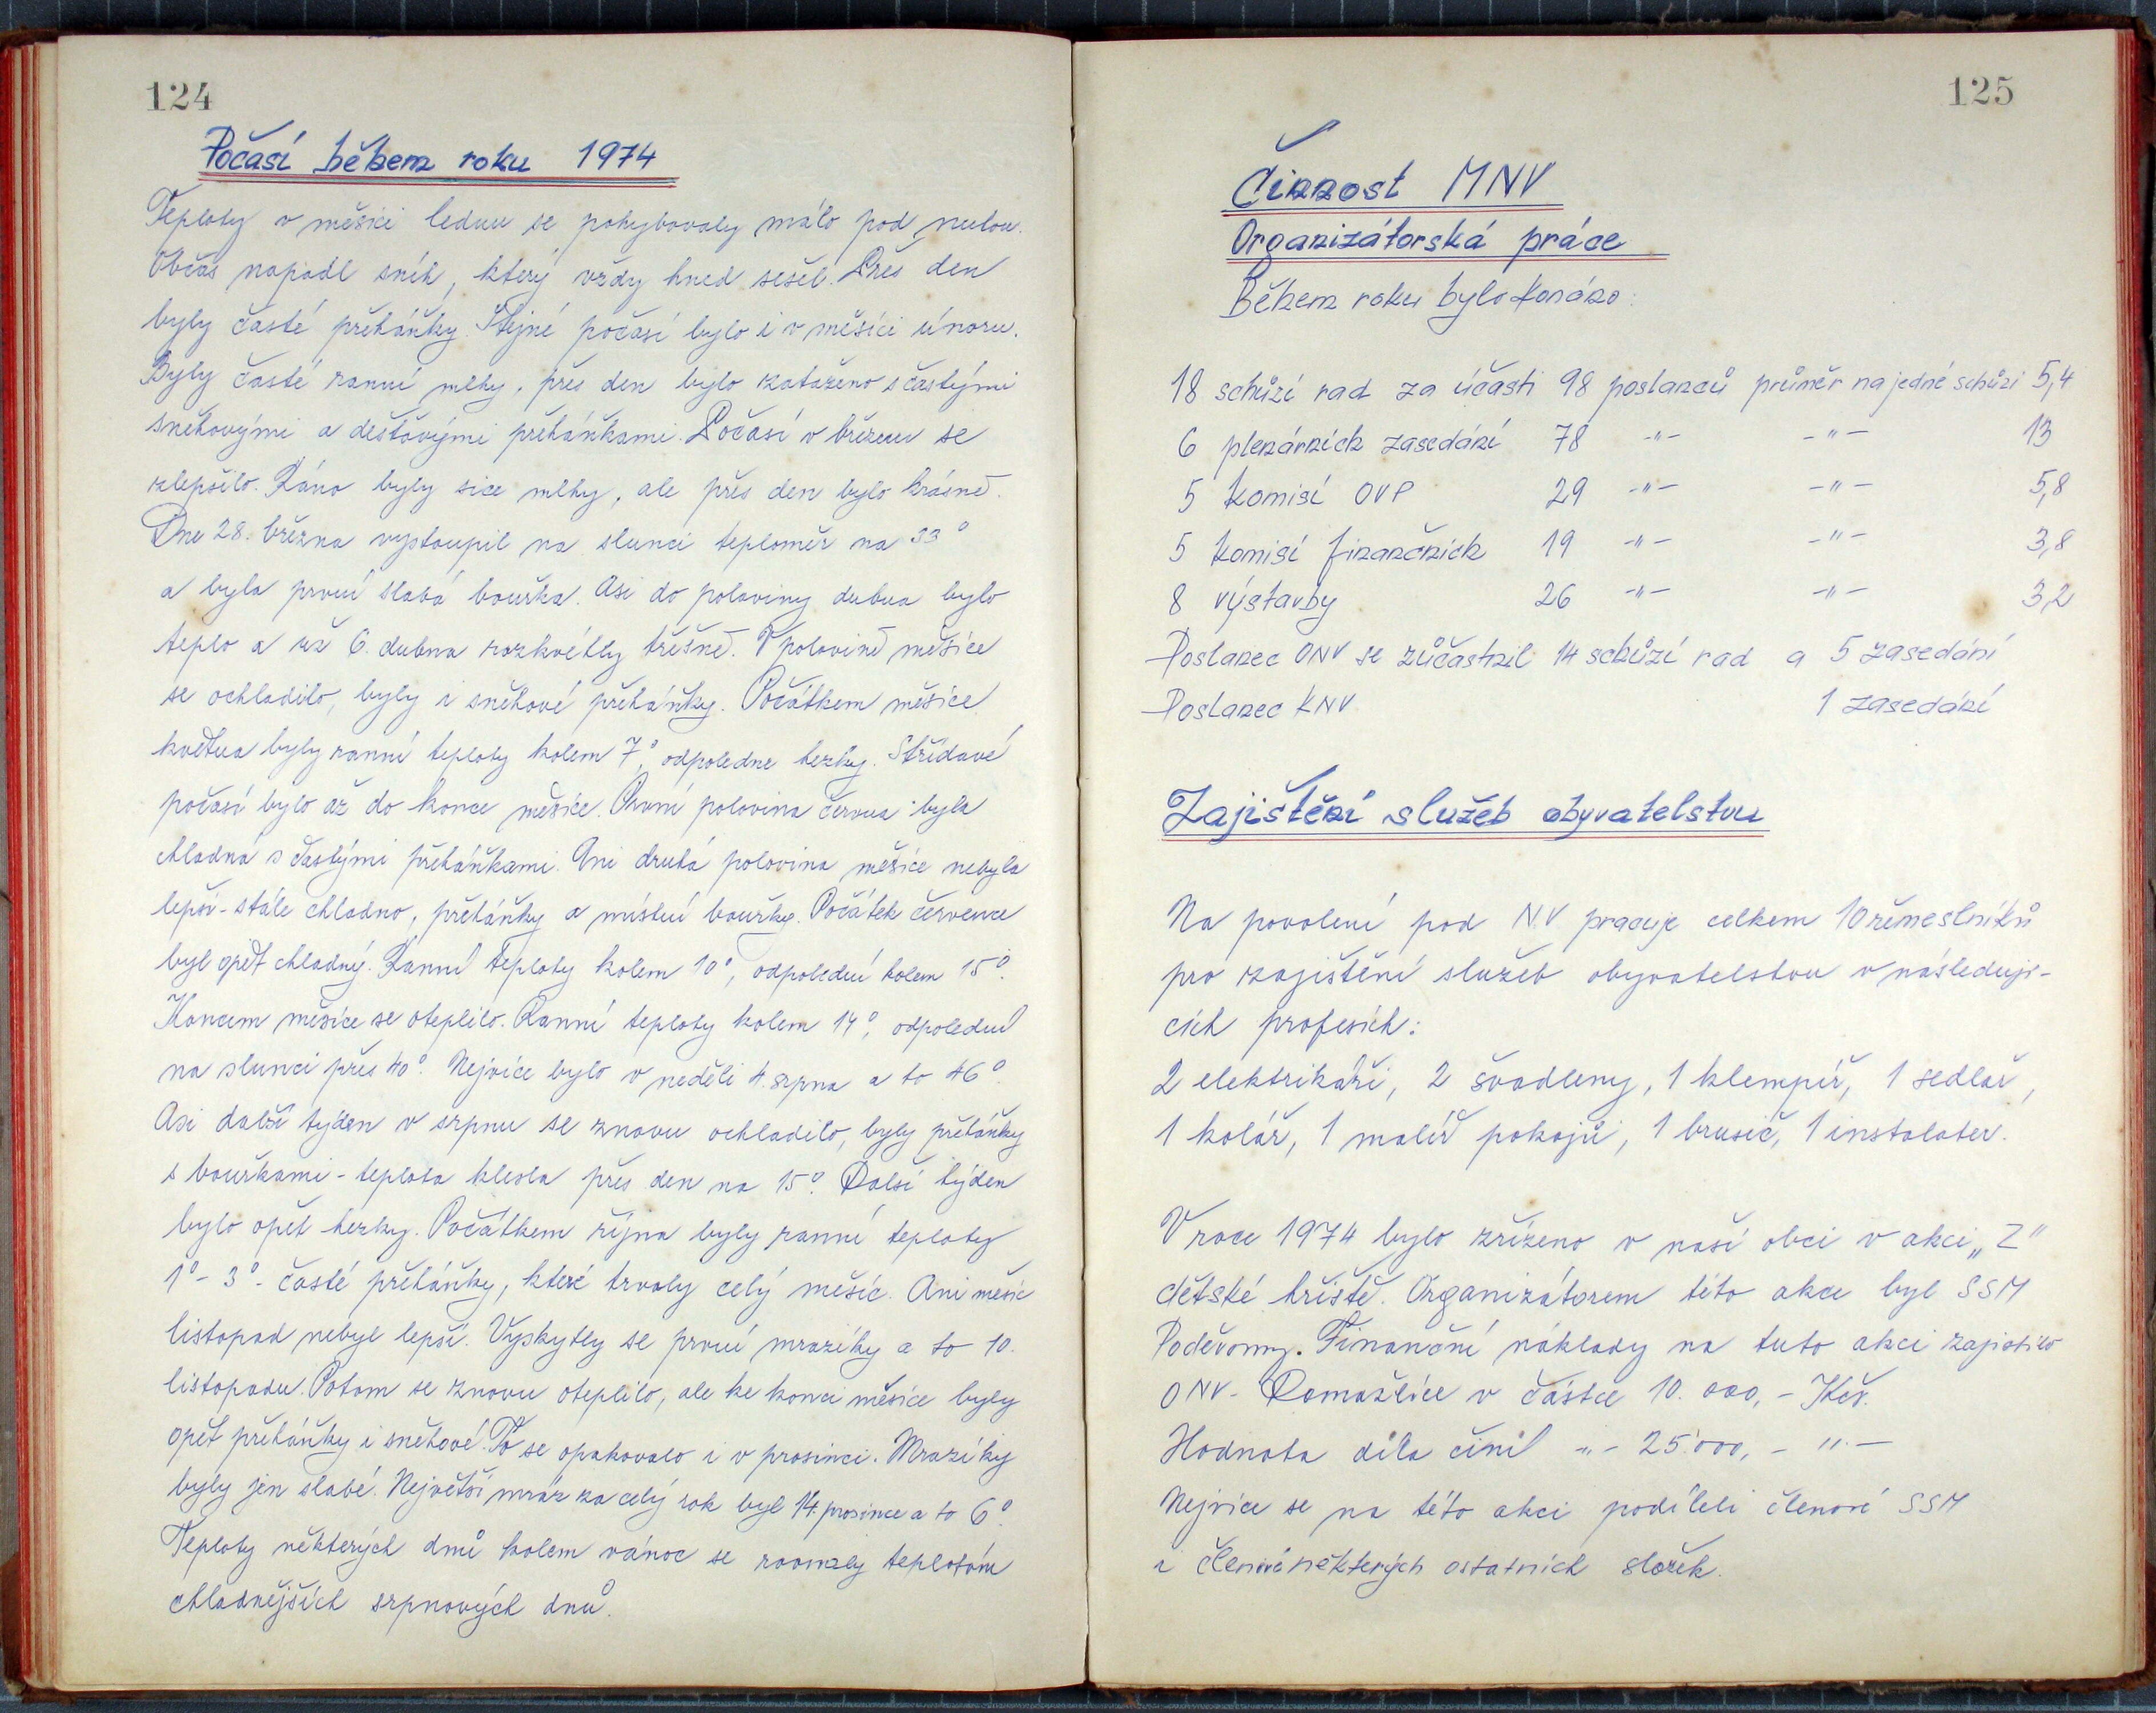 124
Počasí během roku 1974
Teploty v měsíci lednu se pohybovaly málo pod nulou.
Občas napadl sníh, který vždy hned sešel. Přes den
byly časté přeháňky. Stejné počasí bylo i v měsíci únoru.
Byly časté ranní mlhy, přes den bylo zataženo s častými
sněhovými a dešťovými přeháňkami. Počasí v březnu se
zlepšilo. Ráno byly sice mlhy, ale přes den bylo krásně.
Dne 28. března vystoupil na slunci teploměr na 33°
a byla první slabá bouřka. Asi do poloviny dubna bylo
teplo a už 6. dubna rozkvétly třešně. V polovině měsíce
se ochladilo, byly i sněhové přeháňky. Počátkem měsíce
května byly ranní teploty kolem 7°, odpoledne hezky. Střídavé
počasí bylo až do konce měsíce. První polovina června byla
chladná s častými přeháňkami. Ani druhá polovina měsíce nebyla
lepší - stále chladno, přeháňky a místní bouřky. Počátek července
byl opět chladný. Ranní teploty kolem 10°, odpolední kolem 15°.
Koncem měsíce se oteplilo. Ranní teploty kolem 14°, odpolední
na slunci přes 40°. Nejvíce bylo v neděli 4. srpna a to 46°.
Asi další týden v srpnu se znovu ochladilo, byly přeháňky
s bouřkami - teplota klesla přes den na 15°. Další týden
bylo opět hezky. Počátkem října byly ranní teploty
1° - 3° - časté přeháňky, které trvaly celý měsíc. Ani měsíc
listopad nebyl lepší. Vyskytly se první mrazíky a to 10.
listopadu. Potom se znovu oteplilo, ale ke konci měsíce byly
opět přeháňky i sněhové. To se opakovalo i v prosinci. Mrazíky
byly jen slabé. Největší mráz za celý rok byl 14. prosince a to 6°.
Teploty některých dnů kolem vánoc se rovnaly teplotám
chladnějších srpnových dnů.
125
Činnost MNV
Organizátorská práce
Během roku bylo konáno:
18 schůzí rad za účasti 98 poslanců průměr na jedné schůzi 5,4
6 plenárních zasedání 78 -"- -"- 13
5 komisí OVP 29 -"- -"- 5,8
5 komisí finančních 19 -"- -"- 3,8
8 výstavby 26 -"- -"- 3,2
Poslanec ONV se zůčastnil 14 schůzí rad a 5 zasedání
Poslanec KNV 1 zasedání
Zajištění služeb obyvatelstvu
Na povolení pod N.V. pracuje celkem 10 řemeslníků
pro zajištění služeb obyvatelstvu v následují-
cích profesích:
2 elektrikáři, 2 švadleny, 1 klempíř, 1 sedlář,
1 kolář, 1 malíř pokojů, 1 brusič, 1 instalater.
V roce 1974 bylo zřízeno v naší obci v akci „Z"
dětské hřiště. Organizátorem této akce byl SSM
Poděvousy. Finanční náklady na tuto akci zajistilo
ONV - Domažlice v částce 10.000,- Kčs.
Hodnota díla činí -"- 25.000,- "-
Nejvíce se na této akci podíleli členové SSM
i členové některých ostatních složek.